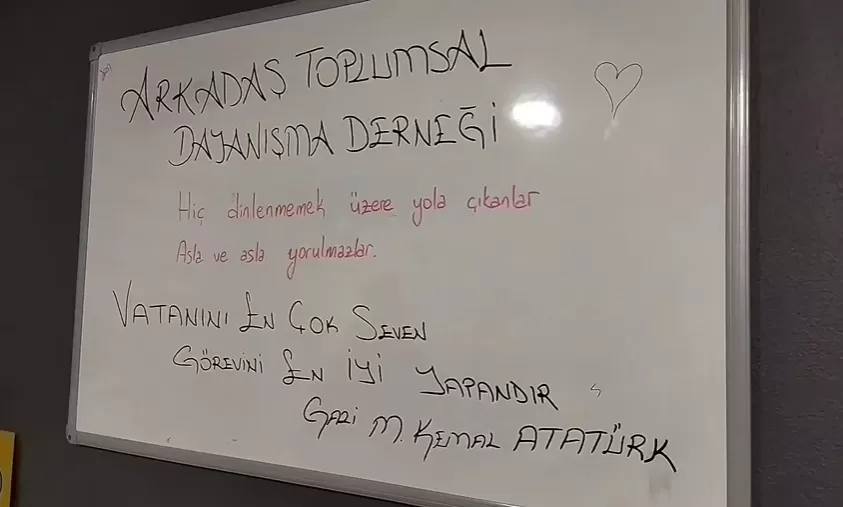 ARKADAŞ TOPLUMSAL
DAYANIŞMA DERNEĞİ
Hiç dinlenmemek üzere yola çıkanlar
Asla ve asla yorulmazlar.
VATANINI EN ÇOK SEVEN
GÖREVİNİ EN İYİ YAPANDIR
GAZİ M. KEMAL ATATÜRK